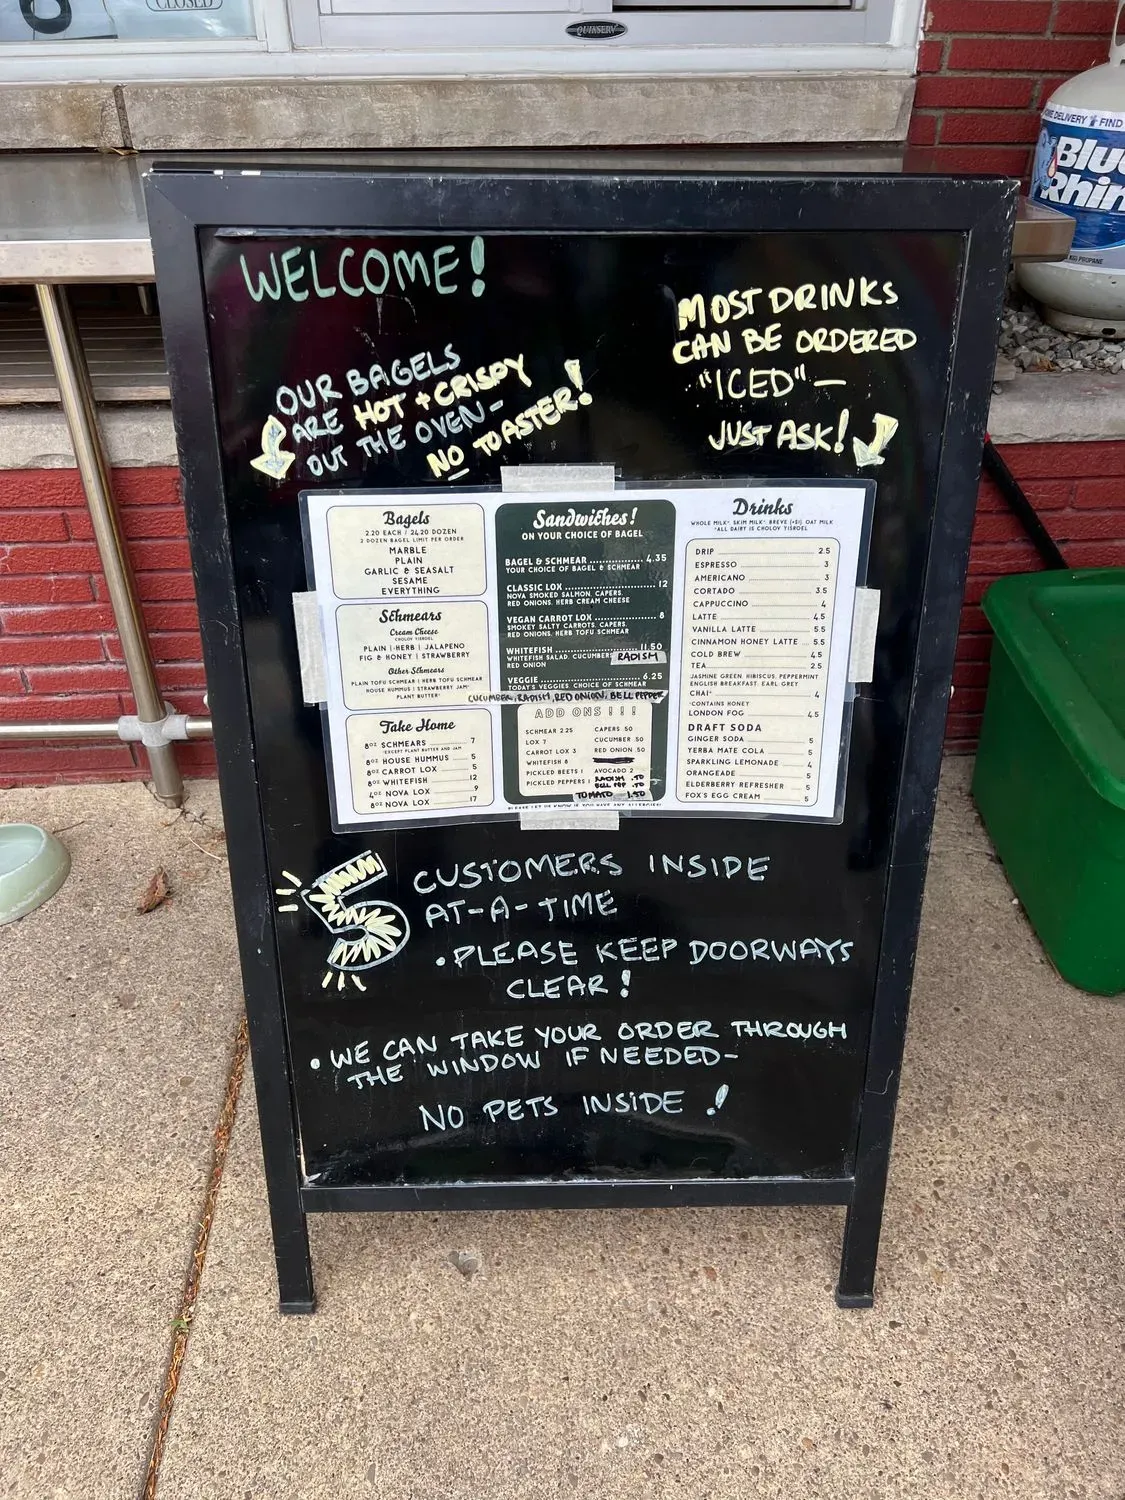 CLOSED
QUIKSERV
HOME DELIVERY
FIND
Blue
Rhin
KG PROPANE
WELCOME!
OUR BAGELS
ARE HOT + CRISPY
OUT THE OVEN-
NO TOASTER!
MOST DRINKS
CAN BE ORDERED
"ICED" —
JUST ASK!
Bagels
2.20 EACH / 24.20 DOZEN
2 DOZEN BAGEL LIMIT PER ORDER
MARBLE
PLAIN
GARLIC & SEASALT
SESAME
EVERYTHING
Schmears
Cream Cheese
CHOLOV YISROEL
PLAIN | HERB | JALAPENO
FIG & HONEY | STRAWBERRY
Other Schmears
PLAIN TOFU SCHMEAR | HERB TOFU SCHMEAR
HOUSE HUMMUS | STRAWBERRY JAM*
PLANT BUTTER*
Take Home
8OZ SCHMEARS 7
*EXCEPT PLANT BUTTER AND JAM
8OZ HOUSE HUMMUS 5
8OZ CARROT LOX 5
8OZ WHITEFISH 12
4OZ NOVA LOX 9
8OZ NOVA LOX 17
Sandwiches!
ON YOUR CHOICE OF BAGEL
BAGEL & SCHMEAR 4.35
YOUR CHOICE OF BAGEL & SCHMEAR
CLASSIC LOX 12
NOVA SMOKED SALMON, CAPERS,
RED ONIONS, HERB CREAM CHEESE
VEGAN CARROT LOX 8
SMOKEY SALTY CARROTS, CAPERS,
RED ONIONS, HERB TOFU SCHMEAR
WHITEFISH 11.50
WHITEFISH SALAD, CUCUMBERS RADISH
RED ONION
VEGGIE 6.25
TODAY'S VEGGIES CHOICE OF SCHMEAR
CUCUMBER, RADISH, RED ONION, BELL PEPPER
ADD ONS!!!
SCHMEAR 2.25
LOX 7
CARROT LOX 3
WHITEFISH 8
PICKLED BEETS 1
PICKLED PEPPERS 1
CAPERS .50
CUCUMBER .50
RED ONION .50
AVOCADO 2
RADISH
BELL PEP
TOMATO 1.50
PLEASE LET US KNOW IF YOU HAVE ANY ALLERGIES!
Drinks
WHOLE MILK* SKIM MILK* BREVE (+$1) OAT MILK
*ALL DAIRY IS CHOLOV YISROEL
DRIP 2.5
ESPRESSO 3
AMERICANO 3
CORTADO 3.5
CAPPUCCINO 4
LATTE 4.5
VANILLA LATTE 5.5
CINNAMON HONEY LATTE 5.5
COLD BREW 4.5
TEA 2.5
JASMINE GREEN, HIBISCUS, PEPPERMINT
ENGLISH BREAKFAST, EARL GREY
CHAI* 4
*CONTAINS HONEY
LONDON FOG 4.5
DRAFT SODA
GINGER SODA 5
YERBA MATE COLA 5
SPARKLING LEMONADE 4
ORANGEADE 5
ELDERBERRY REFRESHER 5
FOX'S EGG CREAM 5
5 CUSTOMERS INSIDE
AT-A-TIME
• PLEASE KEEP DOORWAYS
CLEAR!
• WE CAN TAKE YOUR ORDER THROUGH
THE WINDOW IF NEEDED-
NO PETS INSIDE!